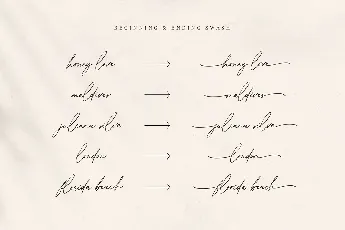 BEGINNING & ENDING SWASH
honey love → honey love
maldives → maldives
juliana silva → juliana silva
london → london
florida beach → florida beach